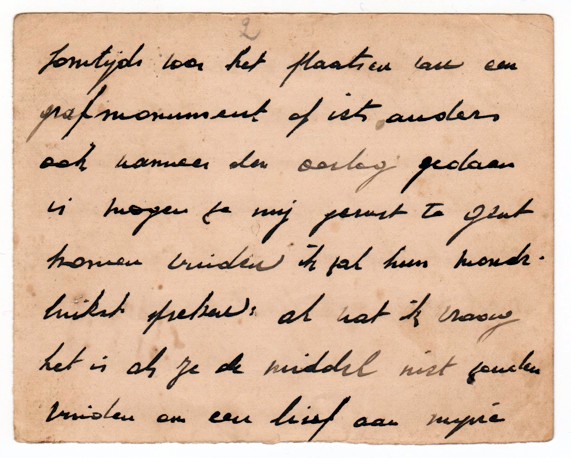 2
somtijds voor het plaatsen van een
grafmonument of iets anders
ook wanneer den oorlog gedaen
is mogen ze mij gerust te Gent
komen vinden ik zal hun mond-
luikst spreken: al wat ik vraag
het is als ze de middel niet zouden
vinden om een brief aan mijne